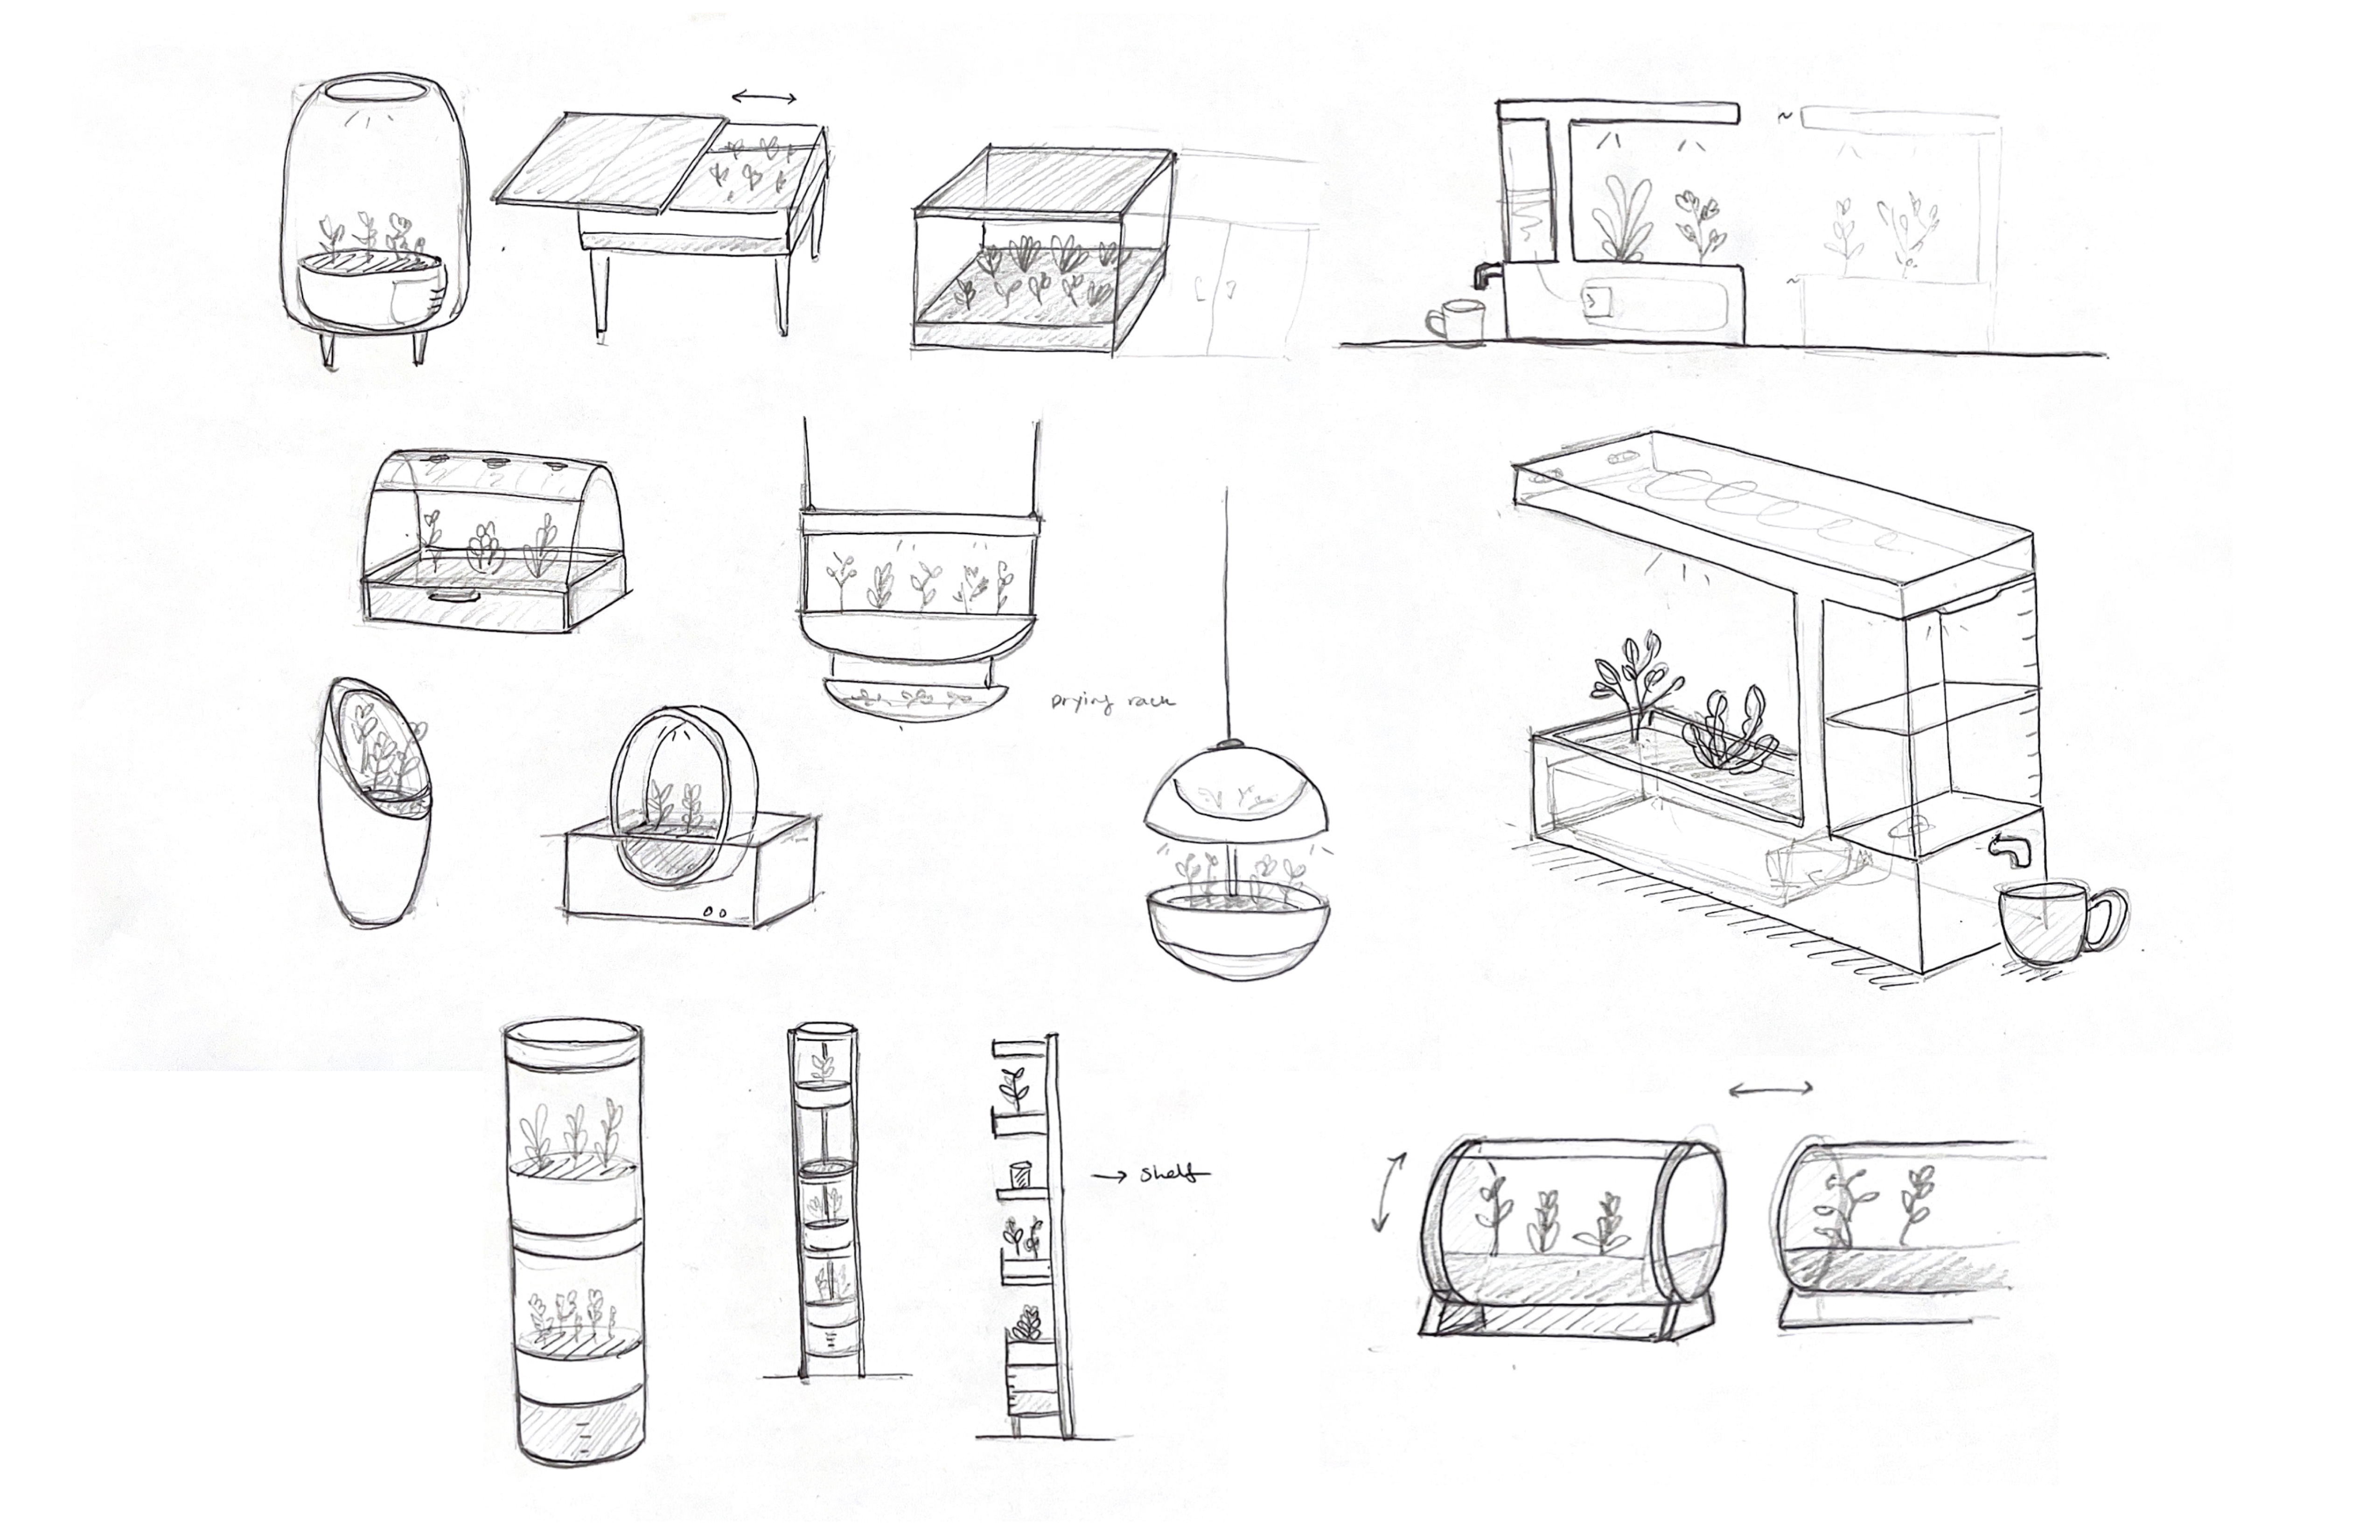 Drying rack
→ Shelf